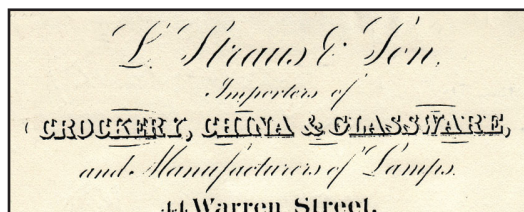 L. Straus & Son,
Importers of
CROCKERY, CHINA & GLASSWARE,
and Manufacturers of Lamps.
44 Warren Street.